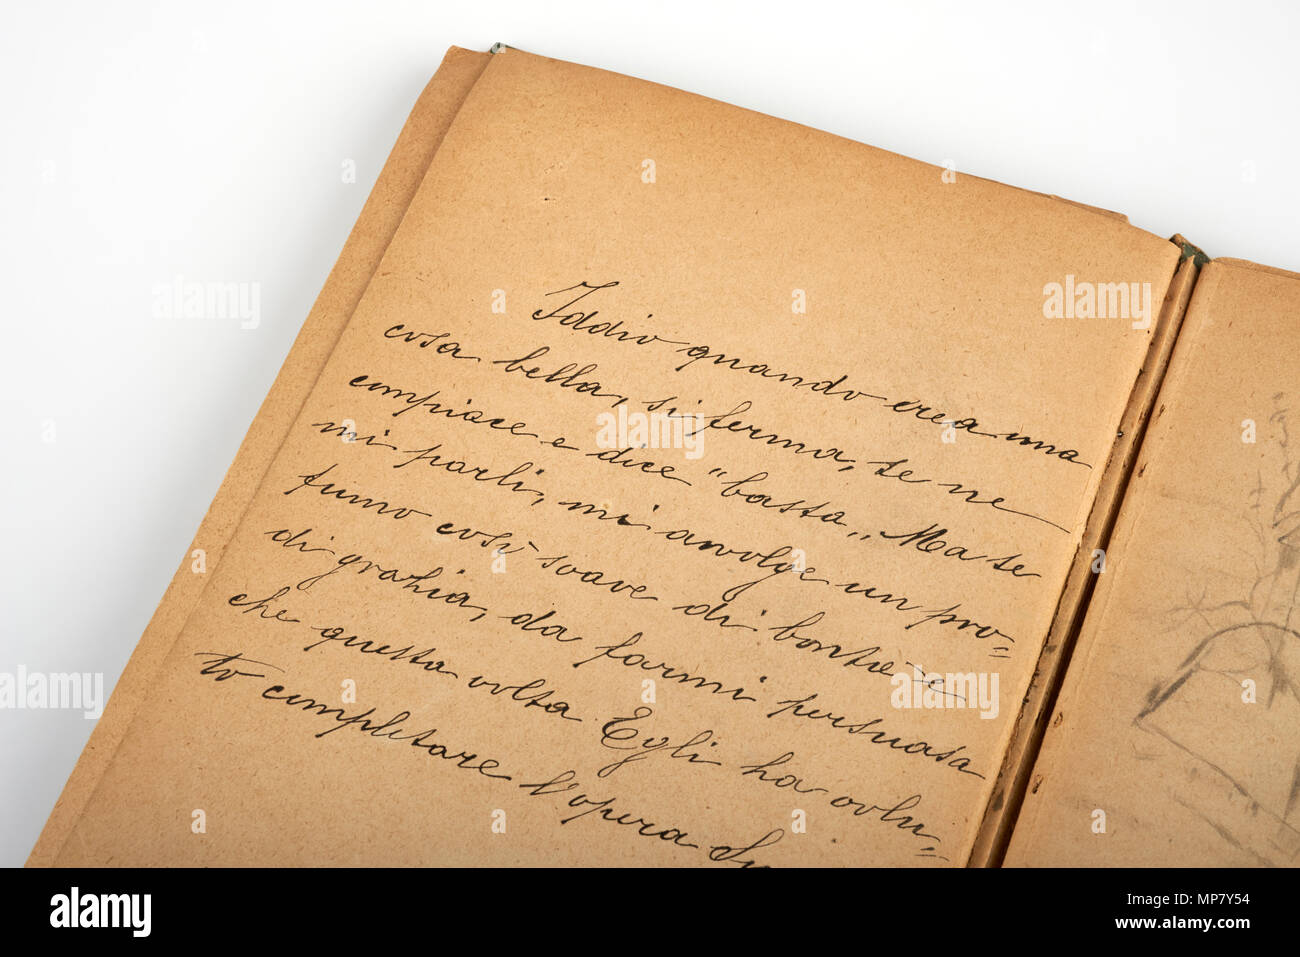 Iddio quando crea una
cosa bella, si ferma, se ne
compiace e dice "basta„ Ma se
mi parli, mi avvolge un pro=
fumo così soave di bontà e
di grazia, da farmi persuasa
che questa volta Egli ha volu=
to completare l'opera
alamy
alamy
alamy
alamy
Image ID: MP7Y54
www.alamy.com